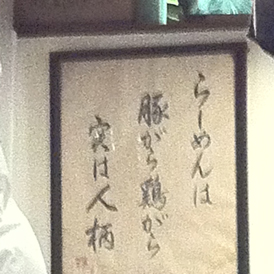 らーめんは
豚がら鶏がら
実は人柄